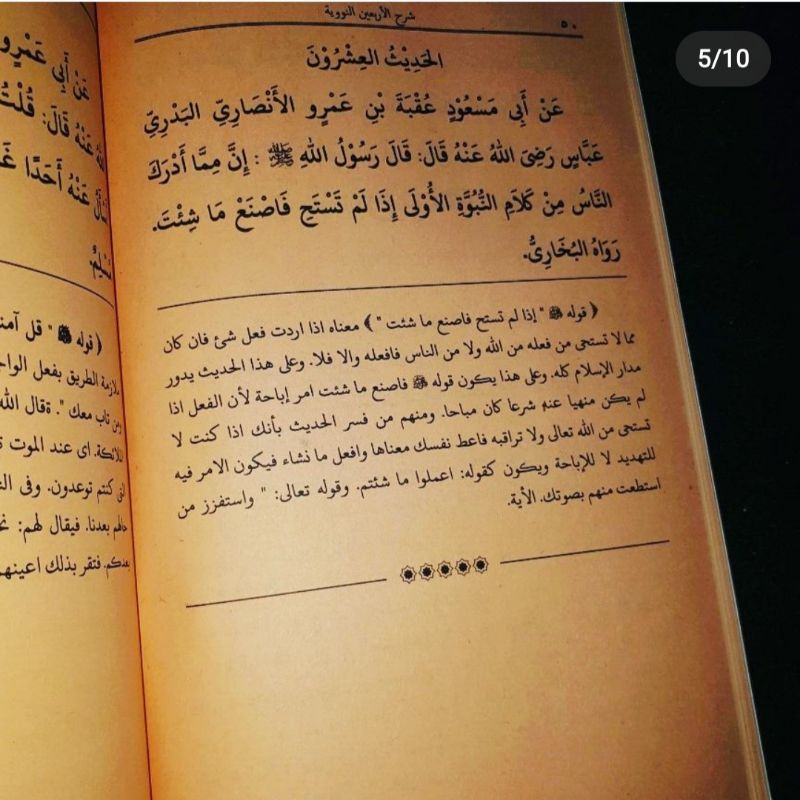 5/10
٥٠
شرح الأربعين النووية
الحَدِيْثُ العِشْرُوْنَ
عَنْ أَبِى مَسْعُوْدٍ عُقْبَةَ بْنِ عَمْرٍو الأَنْصَارِيِّ البَدْرِيِّ
عَبَّاسٍ رَضِىَ اللهُ عَنْهُ قَالَ: قَالَ رَسُوْلُ اللهِ ﷺ : إِنَّ مِمَّا أَدْرَكَ
النَّاسُ مِنْ كَلَامِ النُّبُوَّةِ الأُوْلَى إِذَا لَمْ تَسْتَحِ فَاصْنَعْ مَا شِئْتَ.
رَوَاهُ البُخَارِىُّ.
﴿ قوله ﷺ " إذا لم تستح فاصنع ما شئت " ﴾ معناه اذا اردت فعل شئ فان كان
مما لا تستحى من فعله من الله ولا من الناس فافعله والا فلا. وعلى هذا الحديث يدور
مدار الإسلام كله. وعلى هذا يكون قوله ﷺ فاصنع ما شئت امر إباحة لأن الفعل اذا
لم يكن منهيا عنه شرعا كان مباحا. ومنهم من فسر الحديث بأنك اذا كنت لا
تستحى من الله تعالى ولا تراقبه فاعط نفسك معناها وافعل ما نشاء فيكون الامر فيه
للتهديد لا للإباحة ويكون كقوله: اعملوا ما شئتم. وقوله تعالى: " واستفزز من
استطعت منهم بصوتك. الأية.
عَنْ أَبِى عَمْرٍو
اللهُ عَنْهُ قَالَ: قُلْتُ
عَنْهُ أَحَدًا
﴿ قوله ﷺ " قل آمنت
ملازمة الطريق بفعل
ومن تاب معك ". ةقال الله
اى عند الموت
كنتم توعدون. وفى
بعدنا. فيقال لهم:
فتقر بذلك